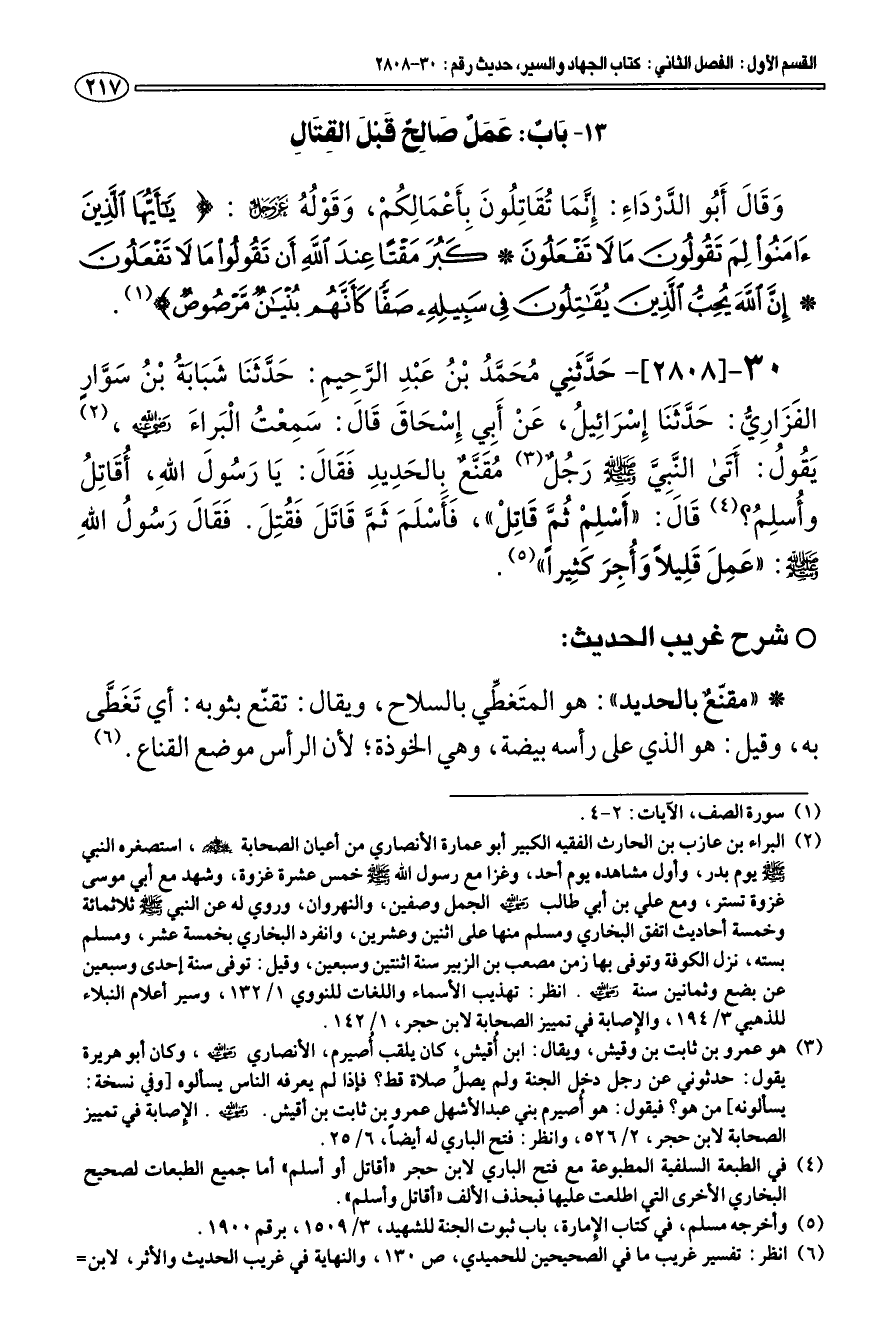 القسم الأول: الفصل الثاني: كتاب الجهاد والسير، حديث رقم: ٣٠-٢٨٠٨
٢١٧
١٣- بَابٌ: عَمَلٌ صَالِحٌ قَبْلَ القِتَالِ
وَقَالَ أَبُو الدَّرْدَاءِ: إِنَّمَا تُقَاتِلُونَ بِأَعْمَالِكُمْ، وَقَوْلُهُ عَزَّوَجَلَّ: ﴿يَٰٓأَيُّهَا ٱلَّذِينَ
ءَامَنُوا۟ لِمَ تَقُولُونَ مَا لَا تَفْعَلُونَ * كَبُرَ مَقْتًا عِندَ ٱللَّهِ أَن تَقُولُوا۟ مَا لَا تَفْعَلُونَ
* إِنَّ ٱللَّهَ يُحِبُّ ٱلَّذِينَ يُقَٰتِلُونَ فِى سَبِيلِهِۦ صَفًّا كَأَنَّهُم بُنْيَٰنٌ مَّرْصُوصٌ﴾(١).
٣٠-[٢٨٠٨]- حَدَّثَنِي مُحَمَّدُ بْنُ عَبْدِ الرَّحِيمِ: حَدَّثَنَا شَبَابَةُ بْنُ سَوَّارٍ
الفَزَارِيُّ: حَدَّثَنَا إِسْرَائِيلُ، عَنْ أَبِي إِسْحَاقَ قَالَ: سَمِعْتُ الْبَرَاءَ رضي الله عنه،(٢)
يَقُولُ: أَتَىٰ النَّبِيَّ ﷺ رَجُلٌ(٣) مُقَنَّعٌ بِالحَدِيدِ فَقَالَ: يَا رَسُولَ اللهِ، أُقَاتِلُ
وأُسلِمُ؟(٤) قَالَ: «أَسْلِمْ ثُمَّ قَاتِلْ»، فَأَسْلَمَ ثُمَّ قَاتَلَ فَقُتِلَ. فَقَالَ رَسُولُ اللهِ
ﷺ: «عَمِلَ قَلِيلاً وَأُجِرَ كَثِيراً»(٥).
○ شرح غريب الحديث:
* «مقنّعٌ بالحديد»: هو المتَغطِّي بالسلاح، ويقال: تقنّع بثوبه: أي تَغَطَّى
به، وقيل: هو الذي على رأسه بيضة، وهي الخوذة؛ لأن الرأس موضع القناع.(٦)
(١) سورة الصف، الآيات: ٢-٤.
(٢) البراء بن عازب بن الحارث الفقيه الكبير أبو عمارة الأنصاري من أعيان الصحابة رضي الله عنهم، استصغره النبي
ﷺ يوم بدر، وأول مشاهده يوم أحد، وغزا مع رسول الله ﷺ خمس عشرة غزوة، وشهد مع أبي موسى
غزوة تستر، ومع علي بن أبي طالب رضي الله عنه الجمل وصفين، والنهروان، وروي له عن النبي ﷺ ثلاثمائة
وخمسة أحاديث اتفق البخاري ومسلم منها على اثنين وعشرين، وانفرد البخاري بخمسة عشر، ومسلم
بسته، نزل الكوفة وتوفى بها زمن مصعب بن الزبير سنة اثنتين وسبعين، وقيل: توفى سنة إحدى وسبعين
عن بضع وثمانين سنة رضي الله عنه. انظر: تهذيب الأسماء واللغات للنووي ١/ ١٣٢، وسير أعلام النبلاء
للذهبي ٣/ ١٩٤، والإصابة في تمييز الصحابة لابن حجر، ١/ ١٤٢.
(٣) هو عمرو بن ثابت بن وقيش، ويقال: ابن أُقيش، كان يلقب أُصيرم، الأنصاري رضي الله عنه، وكان أبو هريرة
يقول: حدثوني عن رجل دخل الجنة ولم يصلِّ صلاة قط؟ فإذا لم يعرفه الناس يسألوه [وفي نسخة:
يسألونه] من هو؟ فيقول: هو أُصيرم بني عبدالأشهل عمرو بن ثابت بن أقيش. رضي الله عنه. الإصابة في تمييز
الصحابة لابن حجر، ٢/ ٥٢٦، وانظر: فتح الباري له أيضاً، ٦/ ٢٥.
(٤) في الطبعة السلفية المطبوعة مع فتح الباري لابن حجر «أقاتل أو أسلم» أما جميع الطبعات لصحيح
البخاري الأخرى التي اطلعت عليها فبحذف الألف «أقاتل وأسلم».
(٥) وأخرجه مسلم، في كتاب الإمارة، باب ثبوت الجنة للشهيد، ٣/ ١٥٠٩، برقم ١٩٠٠.
(٦) انظر: تفسير غريب ما في الصحيحين للحميدي، ص ١٣٠، والنهاية في غريب الحديث والأثر، لابن=